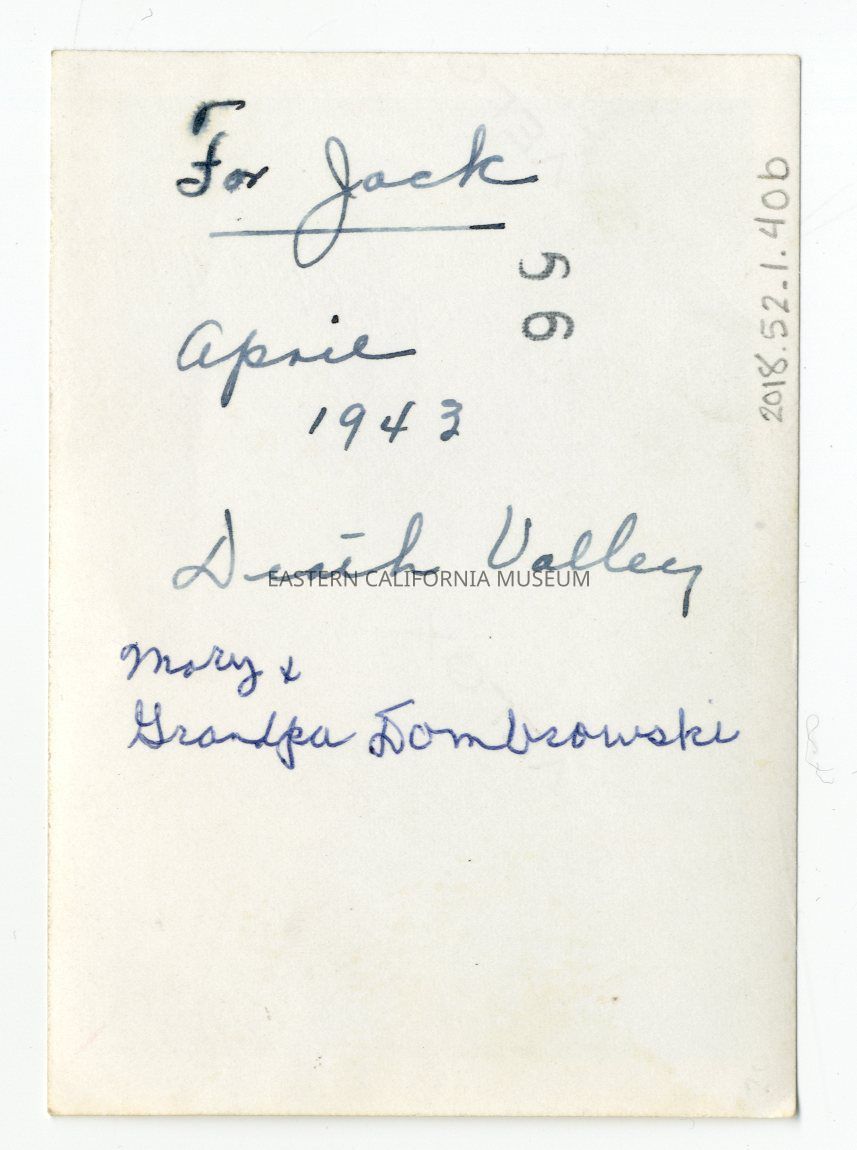 For Jack
April
1943
Death Valley
EASTERN CALIFORNIA MUSEUM
Mary &
Grandpa Dombrowski
2018.52.1.40b